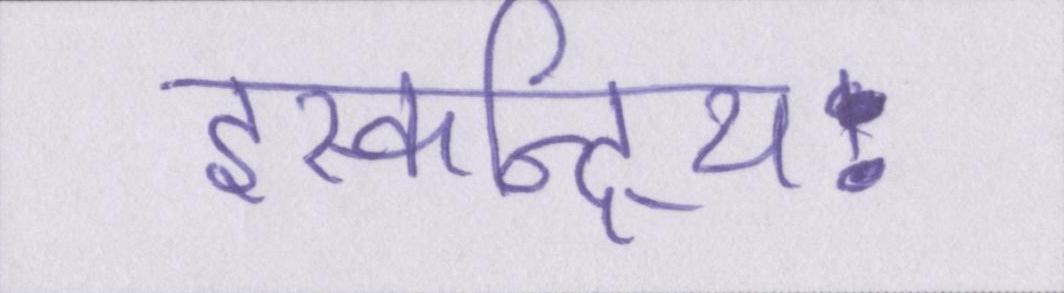 इस्कन्द्रियः